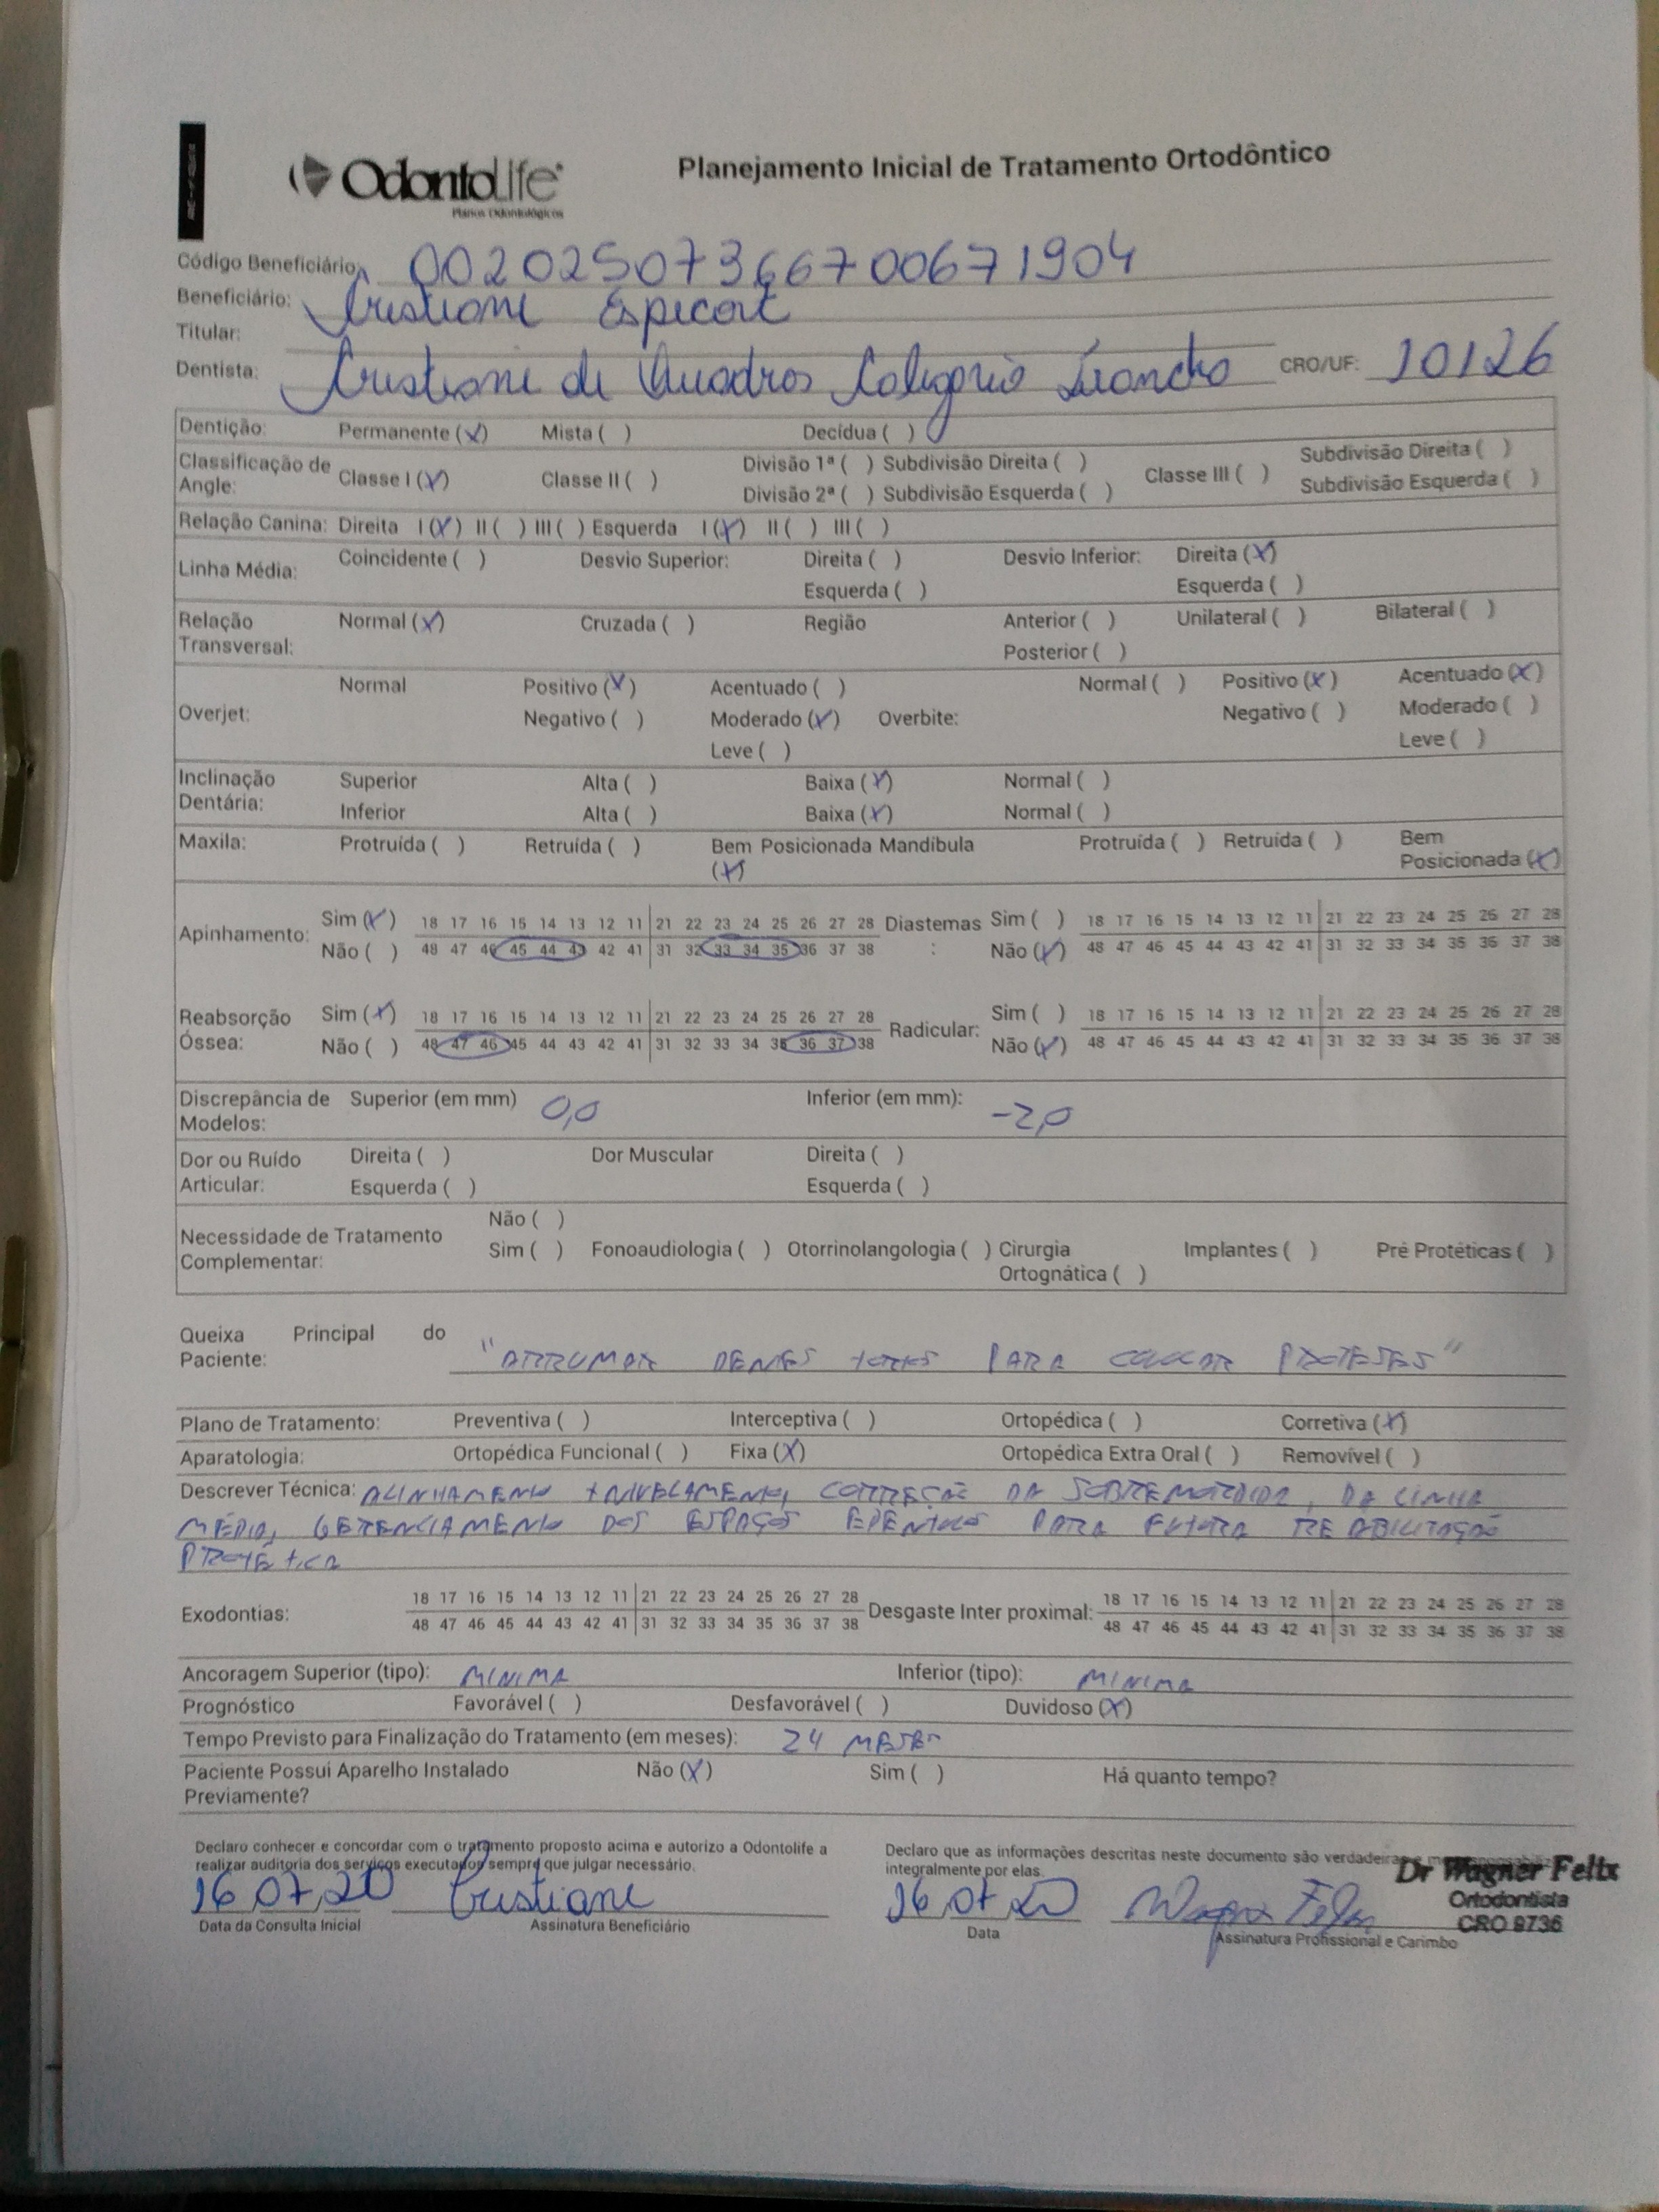 OdontoLife
Planos Odontológicos
Planejamento Inicial de Tratamento Ortodôntico
Código Beneficiário: 00202507366700671904
Beneficiário: Cristiane Especort
Titular:
Dentista: Cristiane de Quadros Leandro CRO/UF: 10126
Dentição: Permanente (X) Mista ( ) Decídua ( )
Classificação de Angle: Classe I (X) Classe II ( ) Divisão 1ª ( ) Subdivisão Direita ( ) Classe III ( ) Subdivisão Direita ( )
Divisão 2ª ( ) Subdivisão Esquerda ( ) Subdivisão Esquerda ( )
Relação Canina: Direita I (X) II ( ) III ( ) Esquerda I (X) II ( ) III ( )
Linha Média: Coincidente ( ) Desvio Superior: Direita ( ) Desvio Inferior: Direita (X)
Esquerda ( ) Esquerda ( )
Relação Transversal: Normal (X) Cruzada ( ) Região Anterior ( ) Unilateral ( ) Bilateral ( )
Posterior ( )
Overjet: Normal Positivo (X) Acentuado ( ) Normal ( ) Positivo (X) Acentuado (X)
Negativo ( ) Moderado (X) Overbite: Negativo ( ) Moderado ( )
Leve ( ) Leve ( )
Inclinação Dentária: Superior Alta ( ) Baixa (X) Normal ( )
Inferior Alta ( ) Baixa (X) Normal ( )
Maxila: Protruída ( ) Retruída ( ) Bem Posicionada (X) Mandíbula Protruída ( ) Retruída ( ) Bem Posicionada (X)
Apinhamento: Sim (X) 18 17 16 15 14 13 12 11 21 22 23 24 25 26 27 28 Diastemas: Sim ( ) 18 17 16 15 14 13 12 11 21 22 23 24 25 26 27 28
Não ( ) 48 47 46 45 44 43 42 41 31 32 33 34 35 36 37 38 Não (X) 48 47 46 45 44 43 42 41 31 32 33 34 35 36 37 38
Reabsorção Óssea: Sim (X) 18 17 16 15 14 13 12 11 21 22 23 24 25 26 27 28 Radicular: Sim ( ) 18 17 16 15 14 13 12 11 21 22 23 24 25 26 27 28
Não ( ) 48 47 46 45 44 43 42 41 31 32 33 34 35 36 37 38 Não (X) 48 47 46 45 44 43 42 41 31 32 33 34 35 36 37 38
Discrepância de Modelos: Superior (em mm) 0,0 Inferior (em mm): -2,0
Dor ou Ruído Articular: Direita ( ) Dor Muscular Direita ( )
Esquerda ( ) Esquerda ( )
Necessidade de Tratamento Complementar: Não ( )
Sim ( ) Fonoaudiologia ( ) Otorrinolangologia ( ) Cirurgia Ortognática ( ) Implantes ( ) Pré Protéticas ( )
Queixa Principal do Paciente: "ARRUMAR DENTES TORTOS PARA COLOCAR PRÓTESES"
Plano de Tratamento: Preventiva ( ) Interceptiva ( ) Ortopédica ( ) Corretiva (X)
Aparatologia: Ortopédica Funcional ( ) Fixa (X) Ortopédica Extra Oral ( ) Removível ( )
Descrever Técnica: ALINHAMENTO + NIVELAMENTO, CORREÇÃO DA SOBREMORDIDA, DA LINHA
MÉDIA, GERENCIAMENTO DOS ESPAÇOS EDÊNTULOS PARA FUTURA REABILITAÇÃO
PROTÉTICA
Exodontias: 18 17 16 15 14 13 12 11 21 22 23 24 25 26 27 28 Desgaste Inter proximal: 18 17 16 15 14 13 12 11 21 22 23 24 25 26 27 28
48 47 46 45 44 43 42 41 31 32 33 34 35 36 37 38 48 47 46 45 44 43 42 41 31 32 33 34 35 36 37 38
Ancoragem Superior (tipo): MINIMA Inferior (tipo): MINIMA
Prognóstico Favorável ( ) Desfavorável ( ) Duvidoso (X)
Tempo Previsto para Finalização do Tratamento (em meses): 24 MESES
Paciente Possui Aparelho Instalado Previamente? Não (X) Sim ( ) Há quanto tempo?
Declaro conhecer e concordar com o tratamento proposto acima e autorizo a Odontolife a
realizar auditoria dos serviços executados sempre que julgar necessário.
Declaro que as informações descritas neste documento são verdadeiras e me
integralmente por elas.
Dr Wagner Felix
Ortodontista
CRO 9736
16 07 20 Cristiane 16 07 20 Wagner Felix
Data da Consulta Inicial Assinatura Beneficiário Data Assinatura Profissional e Carimbo